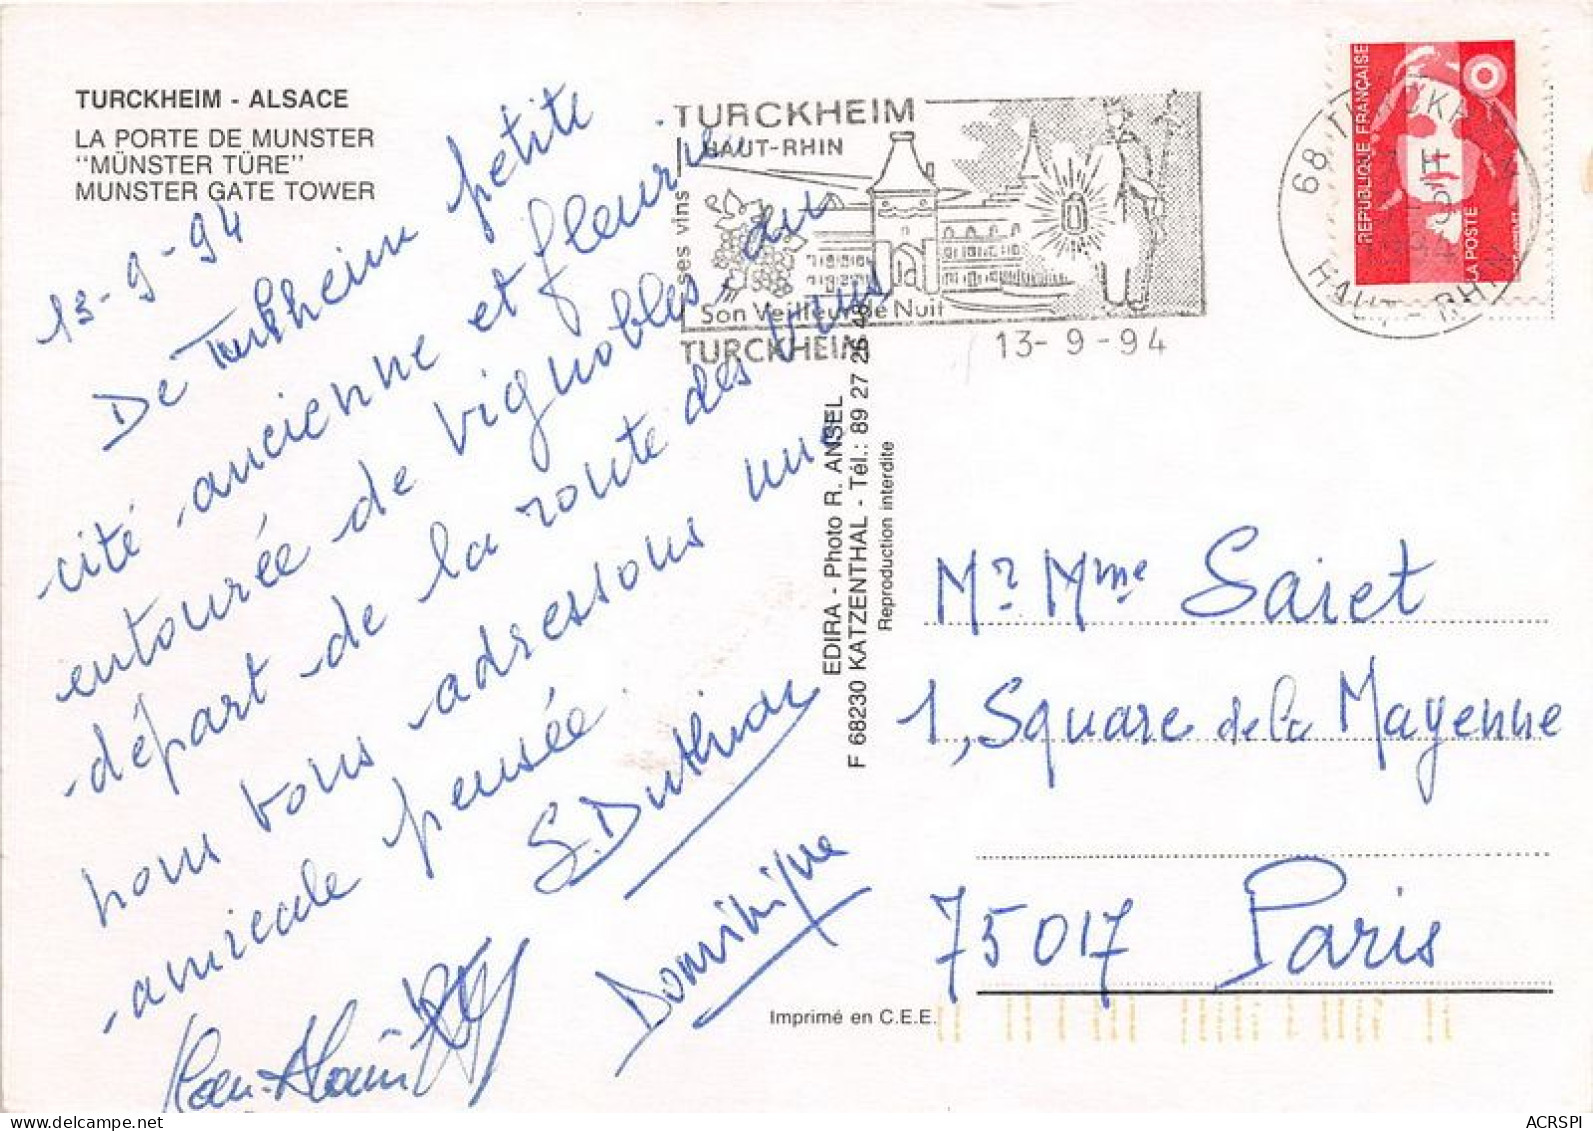 TURCKHEIM - ALSACE
LA PORTE DE MUNSTER
"MÜNSTER TÜRE"
MUNSTER GATE TOWER
13-9-94
De Turkheim petite
cité ancienne et fleurie
entourée de vignobles, au
départ de la route des vins
nous vous adressons une
amicale pensée.
S. Duthu
Dominique
Jean-Alain
TURCKHEIM
HAUT-RHIN
ses vins
Son Veilleur de Nuit
TURCKHEIM
13-9-94
68
HAUT-RHIN
REPUBLIQUE FRANÇAISE
LA POSTE
EDIRA - Photo R. ANSEL
F 68230 KATZENTHAL - Tél.: 89 27 26 48
Reproduction interdite
Mr Mme Sairet
1, Square de la Mayenne
75017 Paris
Imprimé en C.E.E.
ACRSPI